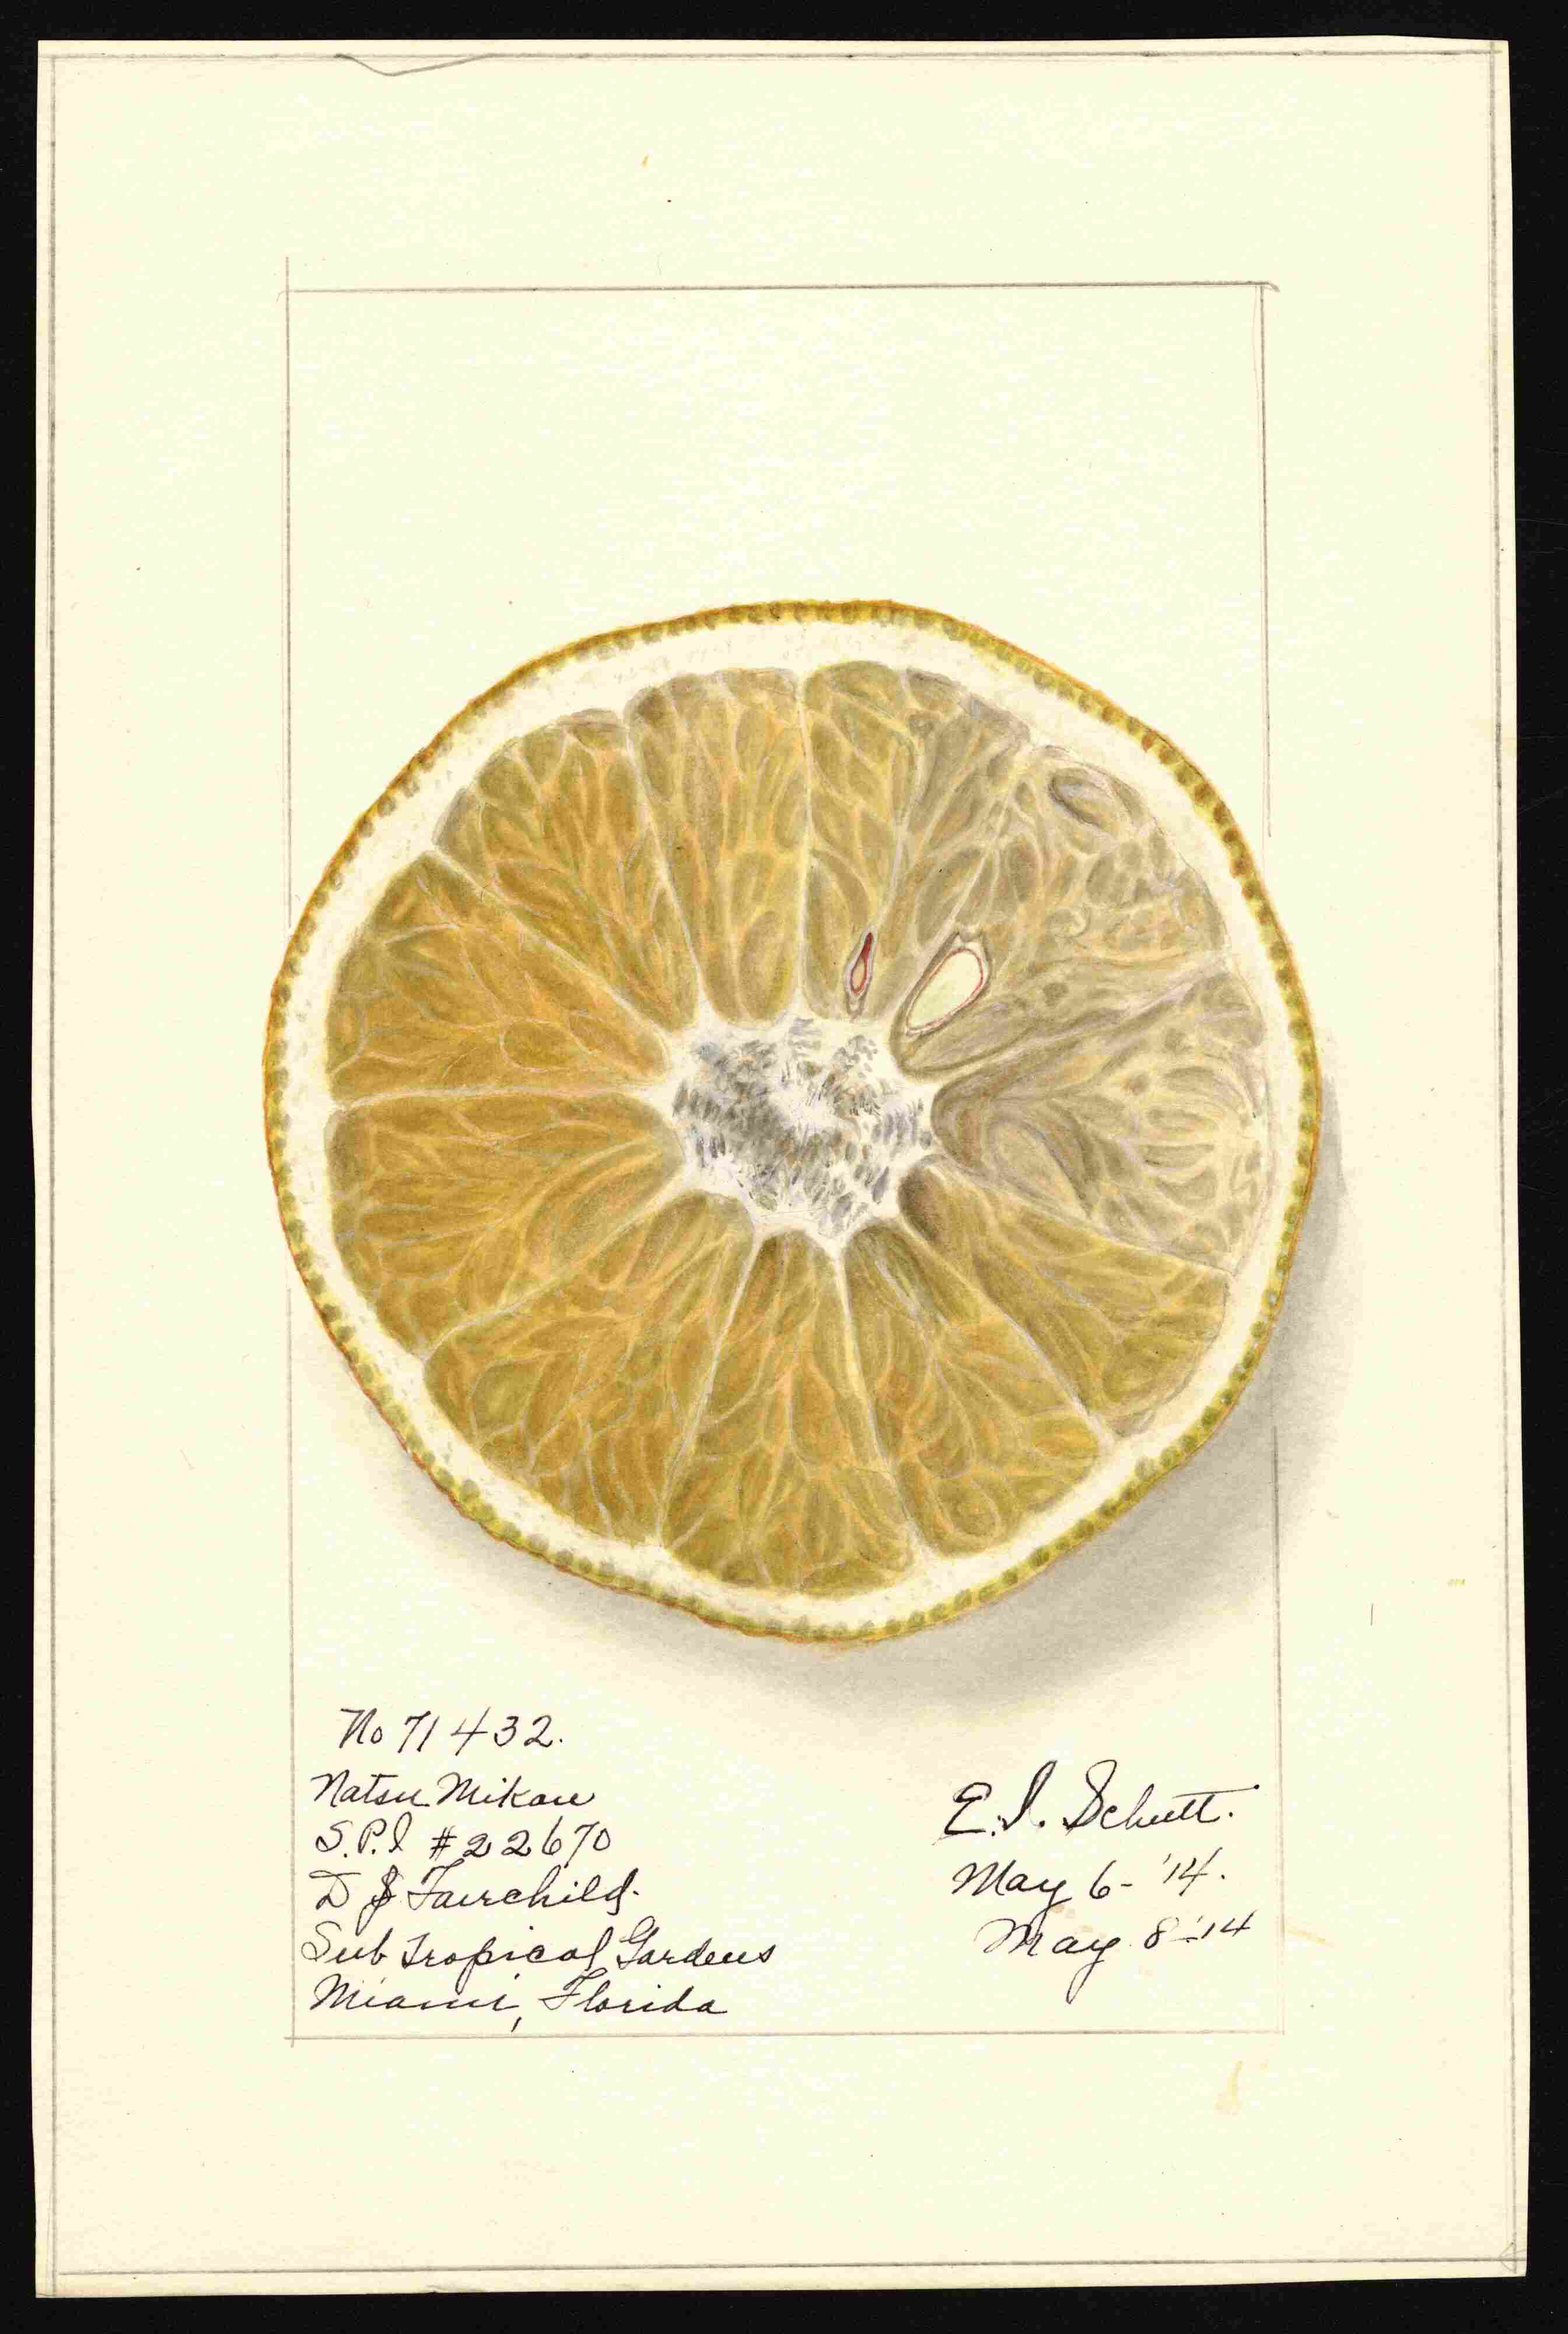 No 71432.
Natsu Mikan
S.P.I #22670
D Fairchild.
Sub Tropical Gardens
Miami, Florida
E. I. Schutt.
May 6- '14.
May 8-'14